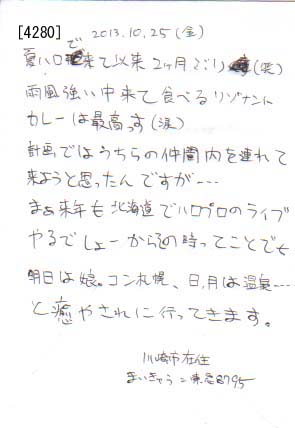 [4280] 2013.10.25(金)
夏ハロで来て以来2ヶ月ぶり(笑)
雨風強い中来て食べるリゾナント
カレーは最高っす(涙)
計画ではうちらの仲間内を連れて
来ようと思ったんですが・・・・
まぁ来年も北海道でハロプロのライブ
やるでしょーからその時ってことでも
明日は娘。コン札幌、日,月は温泉・・・・
と癒やされに行ってきます。
川崎市在住
まいきゃら